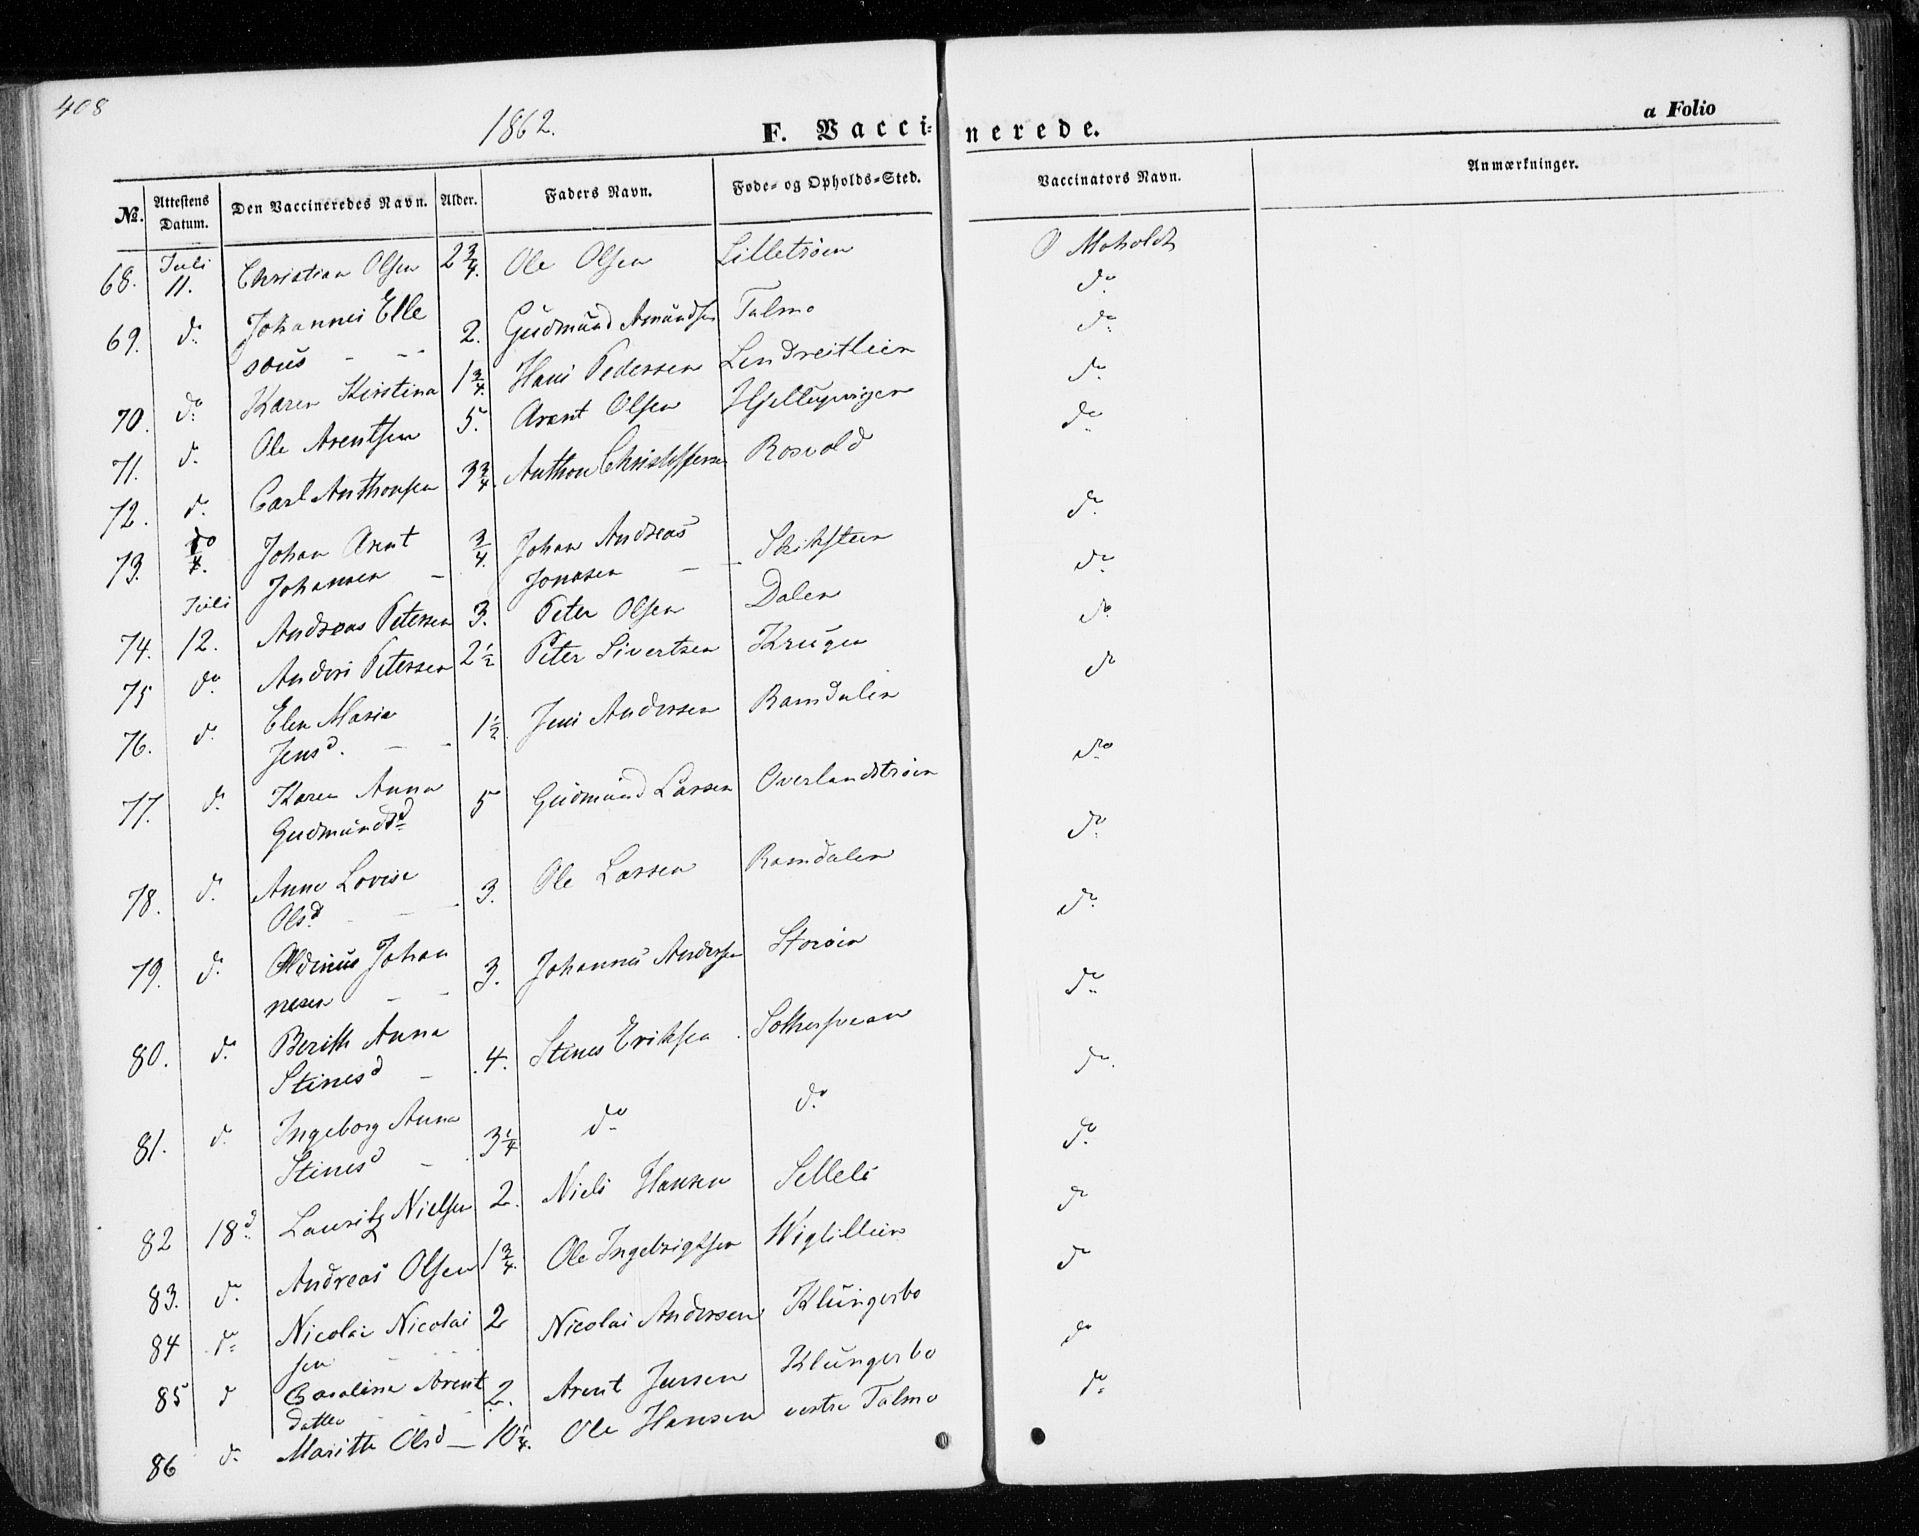 408
1862.
F. Vaccinerede.
a Folio
No. Attestens Datum. Den Vaccineredes Navn. Alder. Faders Navn. Føde- og Opholds-Sted. Vaccinators Navn. Anmærkninger.
68. Juli 11. Christian Olsen 2 3/4. Ole Olsen Lilletrøen O Moholdt
69. do Johannes Elle
sæus - - 2. Gudmund Amundsen Talmo do
70. do Karen Kirstina 1 3/4. Hans Pedersen Lendreitlien do
71. do Ole Arentsen 5. Arent Olsen Hjellupvigen do
72. do Carl Anthonsen 3 3/4. Anthon Christoffersen Rosvold do
73. do Johan Arnt
Johansen - 3/4. Johan Andreas
Jonasen - - Skikstein do
74. Juli 12. Andreas Petersen 3. Peter Olsen Dalen do
75 do Anders Petersen 2 1/2 Peter Sivertsen Krugen do
76. do Elen Maria
Jensd. - - 1 1/2 Jens Andersen Ramdalen do
77. do Karen Anna
Gudmundsd 5 Gudmund Larsen Overlandstrøen do
78. do Anna Lovise
Olsd - - 3. Ole Larsen Ramdalen do
79. do Oldinus Johan
nesen - - 3. Johannes Andersen Storøen do
80. do Berith Anna
Stinesd - 4. Stines Eriksen do
81. do Ingeborg Anna
Stinesd - 3 1/4 do do do
82 18d Lauritz Nielsen 2. Niels Hansen Selleli do
83. do Andreas Olsen 1 3/4. Ole Ingebrigtsen Wiglillien do
84 do Nicolai Nicolai
sen 2 Nicolai Andersen Klungerbo do
85 d Caroline Arent
datter 2. Arent Jensen Klungerbo do
86 do Marith Olsd - 10 1/4. Ole Hansen vestre Talmo do